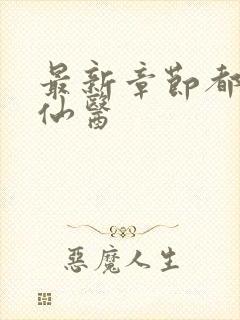 最新章節都
仙醫
惡魔人生